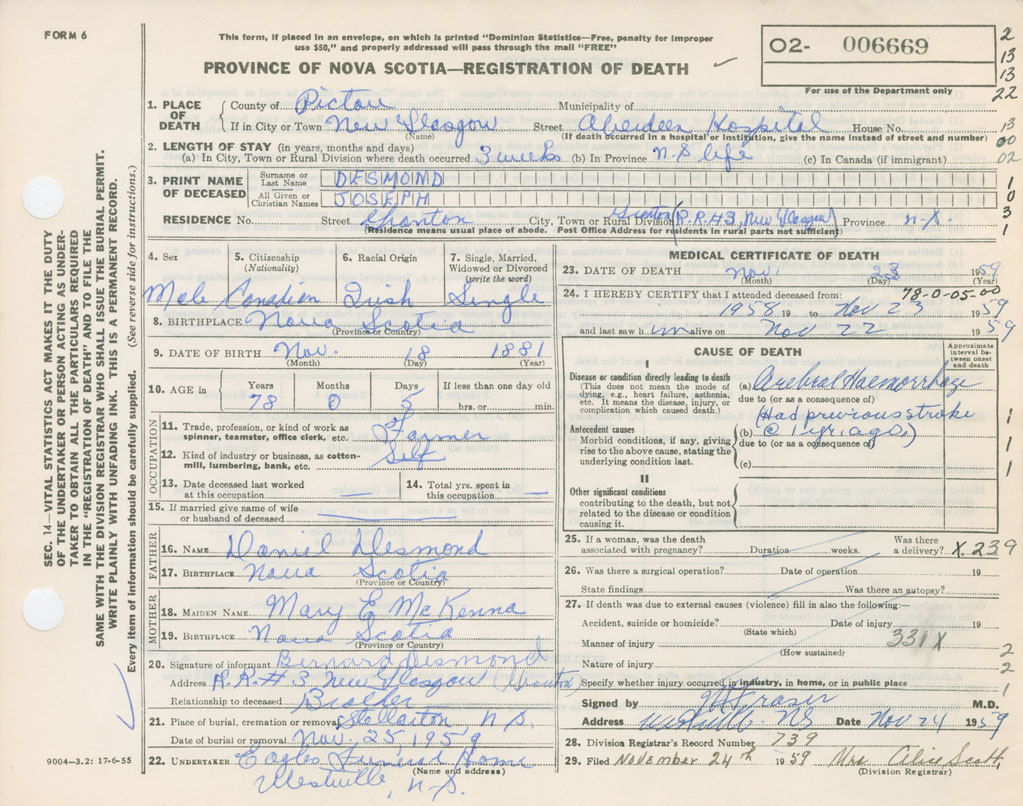 FORM 6
This form, if placed in an envelope, on which is printed "Dominion Statistics—Free, penalty for improper
use $50," and properly addressed will pass through the mail "FREE"
PROVINCE OF NOVA SCOTIA—REGISTRATION OF DEATH
O2- 006669
For use of the Department only
2
13
13
22
1. PLACE OF DEATH
County of Pictou Municipality of
If in City or Town New Glasgow Street Aberdeen Hospital House No. 13
(Name) (If death occurred in a hospital or institution, give the name instead of street and number)
00
2. LENGTH OF STAY (in years, months and days)
(a) In City, Town or Rural Division where death occurred 3 weeks (b) In Province N-S life (c) In Canada (if immigrant) 02
3. PRINT NAME OF DECEASED
Surname or Last Name DESMOND 1
All Given or Christian Names JOSEPH 0
3
RESIDENCE No. Street City, Town or Rural Division (R.R.#3, New Glasgow) Province N-S. 1
(Residence means usual place of abode. Post Office Address for residents in rural parts not sufficient)
4. Sex
Male
5. Citizenship
(Nationality)
Canadian
6. Racial Origin
Irish
7. Single, Married,
Widowed or Divorced
(write the word)
Single
8. BIRTHPLACE Nova Scotia
(Province or Country)
9. DATE OF BIRTH Nov. 18 1881
(Month) (Day) (Year)
10. AGE in
Years Months Days If less than one day old
78 0 5 hrs. or min.
OCCUPATION
11. Trade, profession, or kind of work as
spinner, teamster, office clerk, etc. Farmer
12. Kind of industry or business, as cotton-
mill, lumbering, bank, etc. Self
13. Date deceased last worked
at this occupation —
14. Total yrs. spent in
this occupation —
15. If married give name of wife
or husband of deceased —
FATHER
16. NAME Daniel Desmond
17. BIRTHPLACE Nova Scotia
(Province or Country)
MOTHER
18. MAIDEN NAME Mary E McKenna
19. BIRTHPLACE Nova Scotia
(Province or Country)
20. Signature of informant Bernard Desmond
Address R.R.#3 New Glasgow
Relationship to deceased Brother
21. Place of burial, cremation or removal Stellarton N.S.
Date of burial or removal Nov. 25 1959
22. UNDERTAKER Eagles Funeral Home
(Name and address)
Westville, N-S.
MEDICAL CERTIFICATE OF DEATH
23. DATE OF DEATH Nov. 23 1959
(Month) (Day)
78-0-05-00
24. I HEREBY CERTIFY that I attended deceased from:
1958 19 to Nov 23 1959
and last saw him alive on Nov 22 1959
CAUSE OF DEATH
Approximate
interval be-
tween onset
and death
I
Disease or condition directly leading to death
(This does not mean the mode of
dying, e.g., heart failure, asthenia,
etc. It means the disease, injury, or
complication which caused death.)
(a) Cerebral Haemorrhage
due to (or as a consequence of)
(Had previous stroke 1
Antecedent causes
Morbid conditions, if any, giving
rise to the above cause, stating the
underlying condition last.
(b) @ 1 yr. ago.) 1
due to (or as a consequence of)
(c) 1
II
Other significant conditions
contributing to the death, but not
related to the disease or condition
causing it.
25. If a woman, was the death
associated with pregnancy? Duration weeks. Was there
a delivery? X 239
26. Was there a surgical operation? Date of operation 19
State findings Was there an autopsy?
27. If death was due to external causes (violence) fill in also the following:—
Accident, suicide or homicide? Date of injury 19
(State which)
Manner of injury 331X 2
(How sustained)
Nature of injury 2
Specify whether injury occurred in industry, in home, or in public place 1
Signed by Fraser M.D.
Address Westville. NS Date Nov 24 1959
28. Division Registrar's Record Number 739
29. Filed November 24th 1959 Mrs Alice Scott,
(Division Registrar)
SEC. 14—VITAL STATISTICS ACT MAKES IT THE DUTY
OF THE UNDERTAKER OR PERSON ACTING AS UNDER-
TAKER TO OBTAIN ALL THE PARTICULARS REQUIRED
IN THE "REGISTRATION OF DEATH" AND TO FILE THE
SAME WITH THE DIVISION REGISTRAR WHO SHALL ISSUE THE BURIAL PERMIT.
WRITE PLAINLY WITH UNFADING INK. THIS IS A PERMANENT RECORD.
Every item of information should be carefully supplied. (See reverse side for instructions.)
9004—3.2: 17-6-55